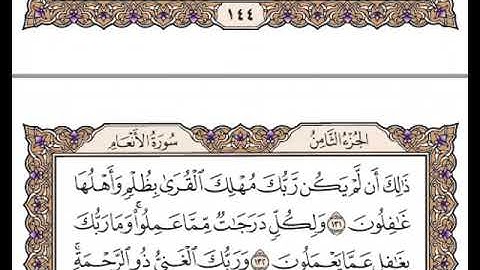 ١٤٤
الجُزْءُ الثَّامِنُ
سُورَةُ الأَنْعَامِ
ذَٰلِكَ أَن لَّمْ يَكُن رَّبُّكَ مُهْلِكَ ٱلْقُرَىٰ بِظُلْمٍ وَأَهْلُهَا
غَٰفِلُونَ ١٣١ وَلِكُلٍّ دَرَجَٰتٌ مِّمَّا عَمِلُوا۟ ۚ وَمَا رَبُّكَ
بِغَٰفِلٍ عَمَّا يَعْمَلُونَ ١٣٢ وَرَبُّكَ ٱلْغَنِىُّ ذُو ٱلرَّحْمَةِ ۚ